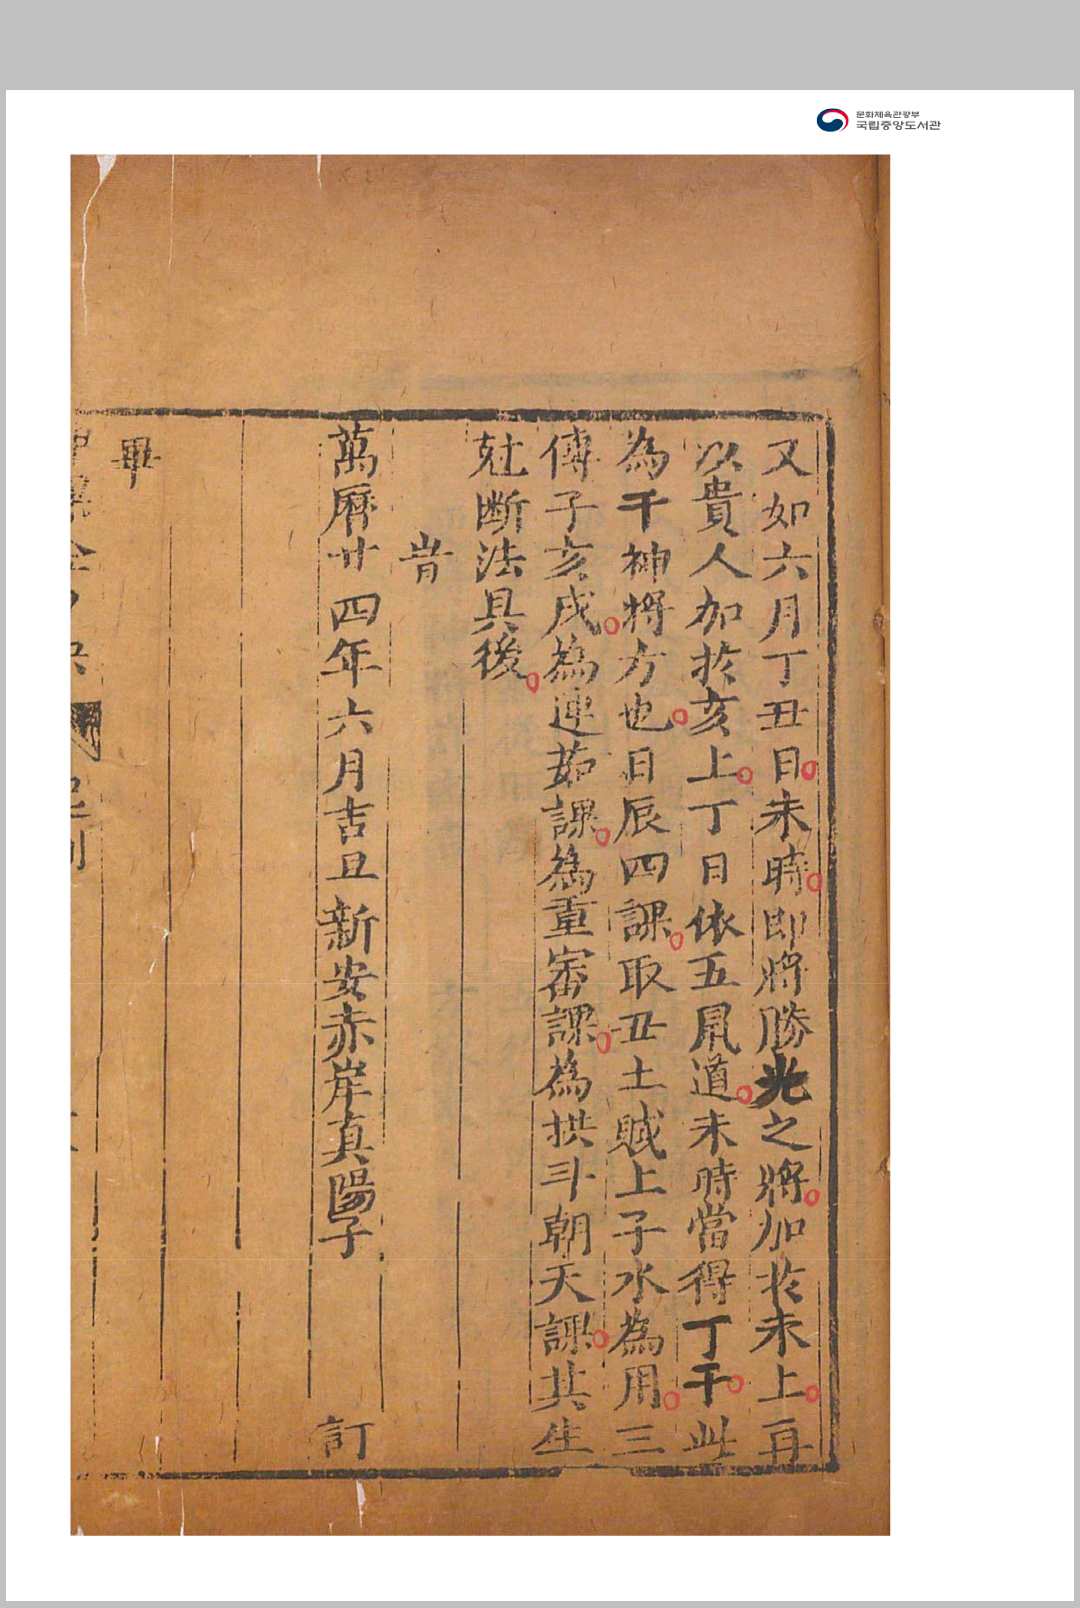 문화체육관광부
국립중앙도서관
又如六月丁丑日未時即將勝光之將加扵未上再
以貴人加扵亥上丁日依五鼠道未時當得丁干此
為干神將方也日辰四課取丑土賊上子水為用三
傳子亥戌為連茹課為重審課為拱斗朝天課共生
尅断法具後
旹
萬曆廿四年六月吉旦新安赤岸真陽子訂
畢